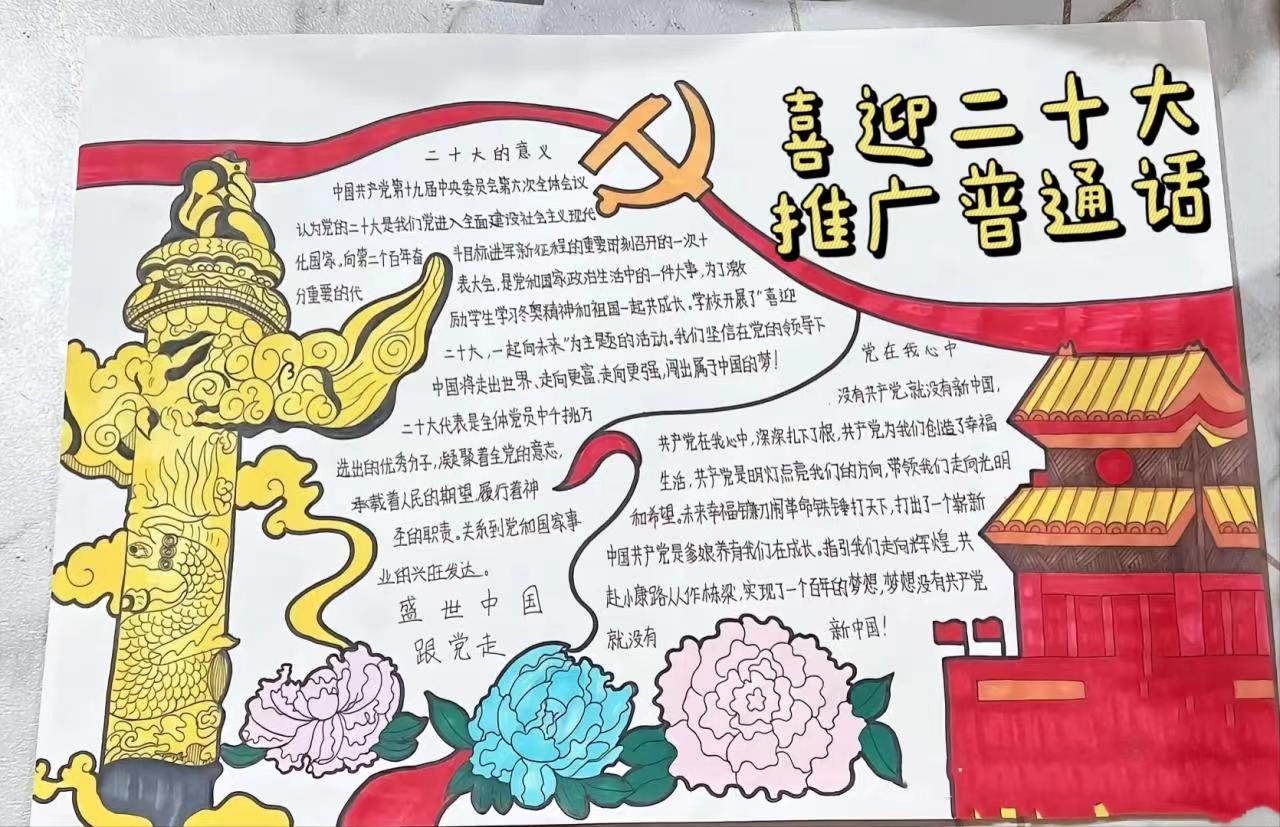 喜迎二十大
推广普通话
二十大的意义
中国共产党第十九届中央委员会第六次全体会议
认为党的二十大是我们党进入全面建设社会主义现代
化国家。向第二个百年奋斗目标进军新征程的重要时刻召开的一次十
分重要的代表大会,是党和国家政治生活中的一件大事,为了激
励学生学习冬奥精神和祖国一起共成长。学校开展了“喜迎
二十大,一起向未来”为主题的活动。我们坚信在党的领导下
中国将走出世界、走向更富、走向更强,闯出属于中国的梦!
二十大代表是全体党员中千挑万
选出的优秀分子,凝聚着全党的意志,
承载着人民的期望,履行着神
圣的职责。关系到党和国家事
业的兴旺发达。
盛世中国
跟党走
党在我心中
没有共产党,就没有新中国,
共产党在我心中,深深扎下了根,共产党为我们创造了幸福
生活,共产党是明灯点亮我们的方向,带领我们走向光明
和希望。未来幸福镰刀闹革命铁锤打天下,打出了一个崭新
中国共产党是爹娘养育我们在成长。指引我们走向辉煌,共
赴小康路人作栋梁,实现了一个百年的梦想,梦想没有共产党
就没有新中国!